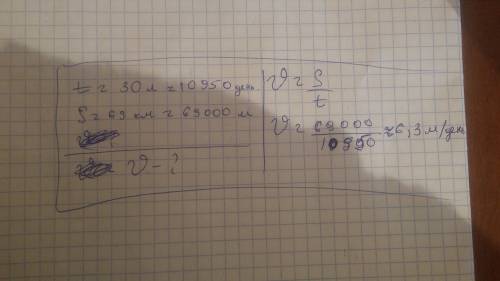 t = 30 л = 10950 день
S = 69 км = 69000 м
v - ?
v = S/t
v = 69000/10950 ≈ 6,3 м/день